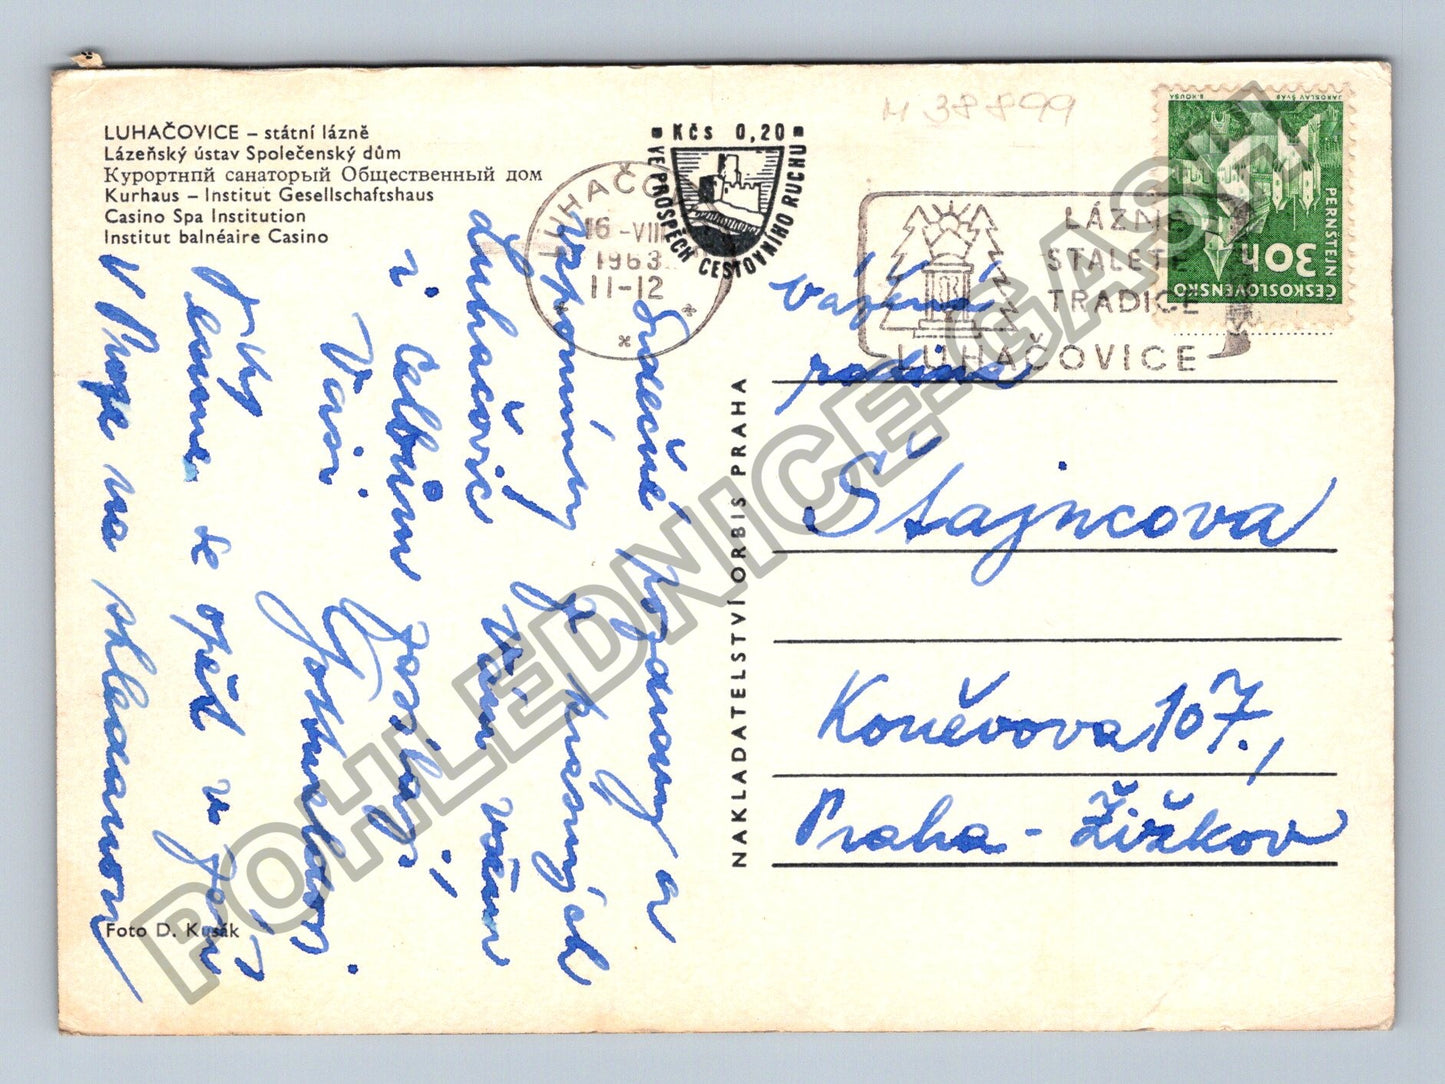 LUHAČOVICE – státní lázně
Lázeňský ústav Společenský dům
Курортнпй санаторый Общественный дом
Kurhaus – Institut Gesellschaftshaus
Casino Spa Institution
Institut balnéaire Casino
M 38899
Kčs 0,20
VE PROSPĚCH CESTOVNÍHO RUCHU
LUHAČOV
16 -VIII
1963
11-12
LÁZNĚ
STALETÉ
TRADICE
LUHAČOVICE
JAROSLAV ŠVÁB
B. HOUSA
PERNŠTEJN
30h
ČESKOSLOVENSKO
Srdečné pozdravy a
vzpomínky z krásných
Luhačovic Vám všem
i celbim posílají
Vaši
Těšíme se opět v
V Praze na shledanou
Vážená
rodina
Štajncova
Koněvova 107.,
Praha - Žižkov
NAKLADATELSTVÍ ORBIS PRAHA
Foto D. Kusák
POHLEDNICE-GASH